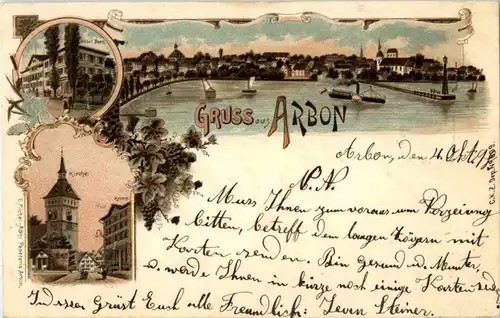 Hôtel Baer.
GRUSS aus ARBON
Kirche.
Arbon, den 4. Okt. 9
N. N.
Muss Ihnen zum voraus um Verzeiung
bitten, betreff den langen Zögern mit
Karten senden. Bin Gesund u. Munter,
u. werde Ihnen in kürze noch einige Karten
Indessen Grüst Euch alle Freundlich: Steiner.